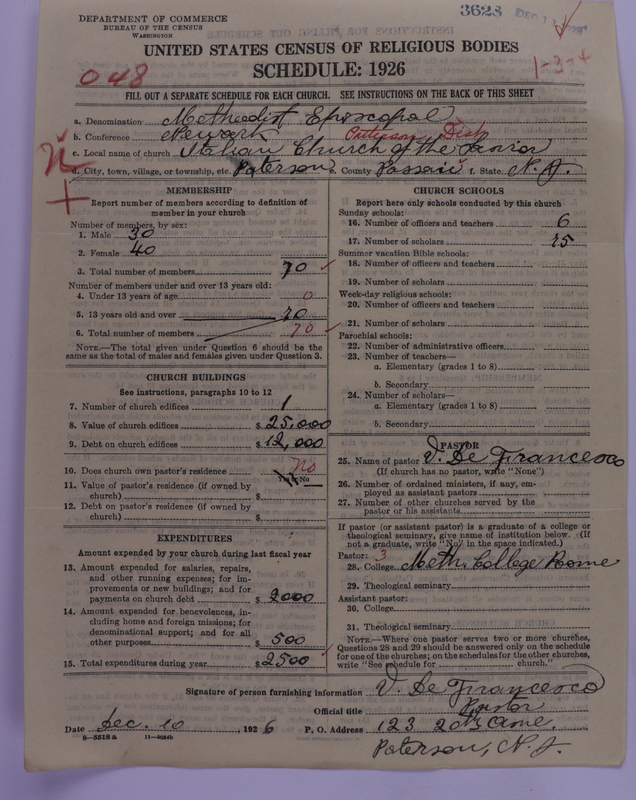 DEPARTMENT OF COMMERCE
BUREAU OF THE CENSUS
WASHINGTON
3623
UNITED STATES CENSUS OF RELIGIOUS BODIES
SCHEDULE: 1926
048
1-3-4
FILL OUT A SEPARATE SCHEDULE FOR EACH CHURCH. SEE INSTRUCTIONS ON THE BACK OF THIS SHEET
a. Denomination Methodist Episcopal
b. Conference Newark Patterson Dist
c. Local name of church Italian Church of the Savior
d. City, town, village, or township, etc. Paterson e. County Passaic f. State N. J.
MEMBERSHIP
Report number of members according to definition of
member in your church
Number of members, by sex:
1. Male 30
2. Female 40
3. Total number of members 70
Number of members under and over 13 years old:
4. Under 13 years of age 0
5. 13 years old and over 70
6. Total number of members 70
NOTE.—The total given under Question 6 should be
the same as the total of males and females given under Question 3.
CHURCH BUILDINGS
See instructions, paragraphs 10 to 12
7. Number of church edifices 1
8. Value of church edifices $ 25,000
9. Debt on church edifices $ 12,000
10. Does church own pastor's residence No
Yes or No
11. Value of pastor's residence (if owned by
church) $
12. Debt on pastor's residence (if owned by
church) $
EXPENDITURES
Amount expended by your church during last fiscal year
13. Amount expended for salaries, repairs,
and other running expenses; for im-
provements or new buildings; and for
payments on church debt $ 2000
14. Amount expended for benevolences, in-
cluding home and foreign missions; for
denominational support; and for all
other purposes $ 500
15. Total expenditures during year $ 2500
CHURCH SCHOOLS
Report here only schools conducted by this church
Sunday schools:
16. Number of officers and teachers 6
17. Number of scholars 75
Summer vacation Bible schools:
18. Number of officers and teachers
19. Number of scholars
Week-day religious schools:
20. Number of officers and teachers
21. Number of scholars
Parochial schools:
22. Number of administrative officers
23. Number of teachers—
a. Elementary (grades 1 to 8)
b. Secondary
24. Number of scholars—
a. Elementary (grades 1 to 8)
b. Secondary
PASTOR
25. Name of pastor V. De Francesco
(If church has no pastor, write "None")
26. Number of ordained ministers, if any, em-
ployed as assistant pastors
27. Number of other churches served by the
pastor or his assistants
If pastor (or assistant pastor) is a graduate of a college or
theological seminary, give name of institution below. (If
not a graduate, write "No" in the space indicated.)
Pastor: 3
28. College Meth. College Rome
29. Theological seminary
Assistant pastor:
30. College
31. Theological seminary
NOTE.—Where one pastor serves two or more churches,
Questions 28 and 29 should be answered only on the schedule
for one of the churches; on the schedules for the other churches,
write "See schedule for church."
Signature of person furnishing information V. De Francesco
Official title Pastor
Date Dec. 10, 1926 P. O. Address 123 20th Ave.
8—5518a
Paterson, N. J.